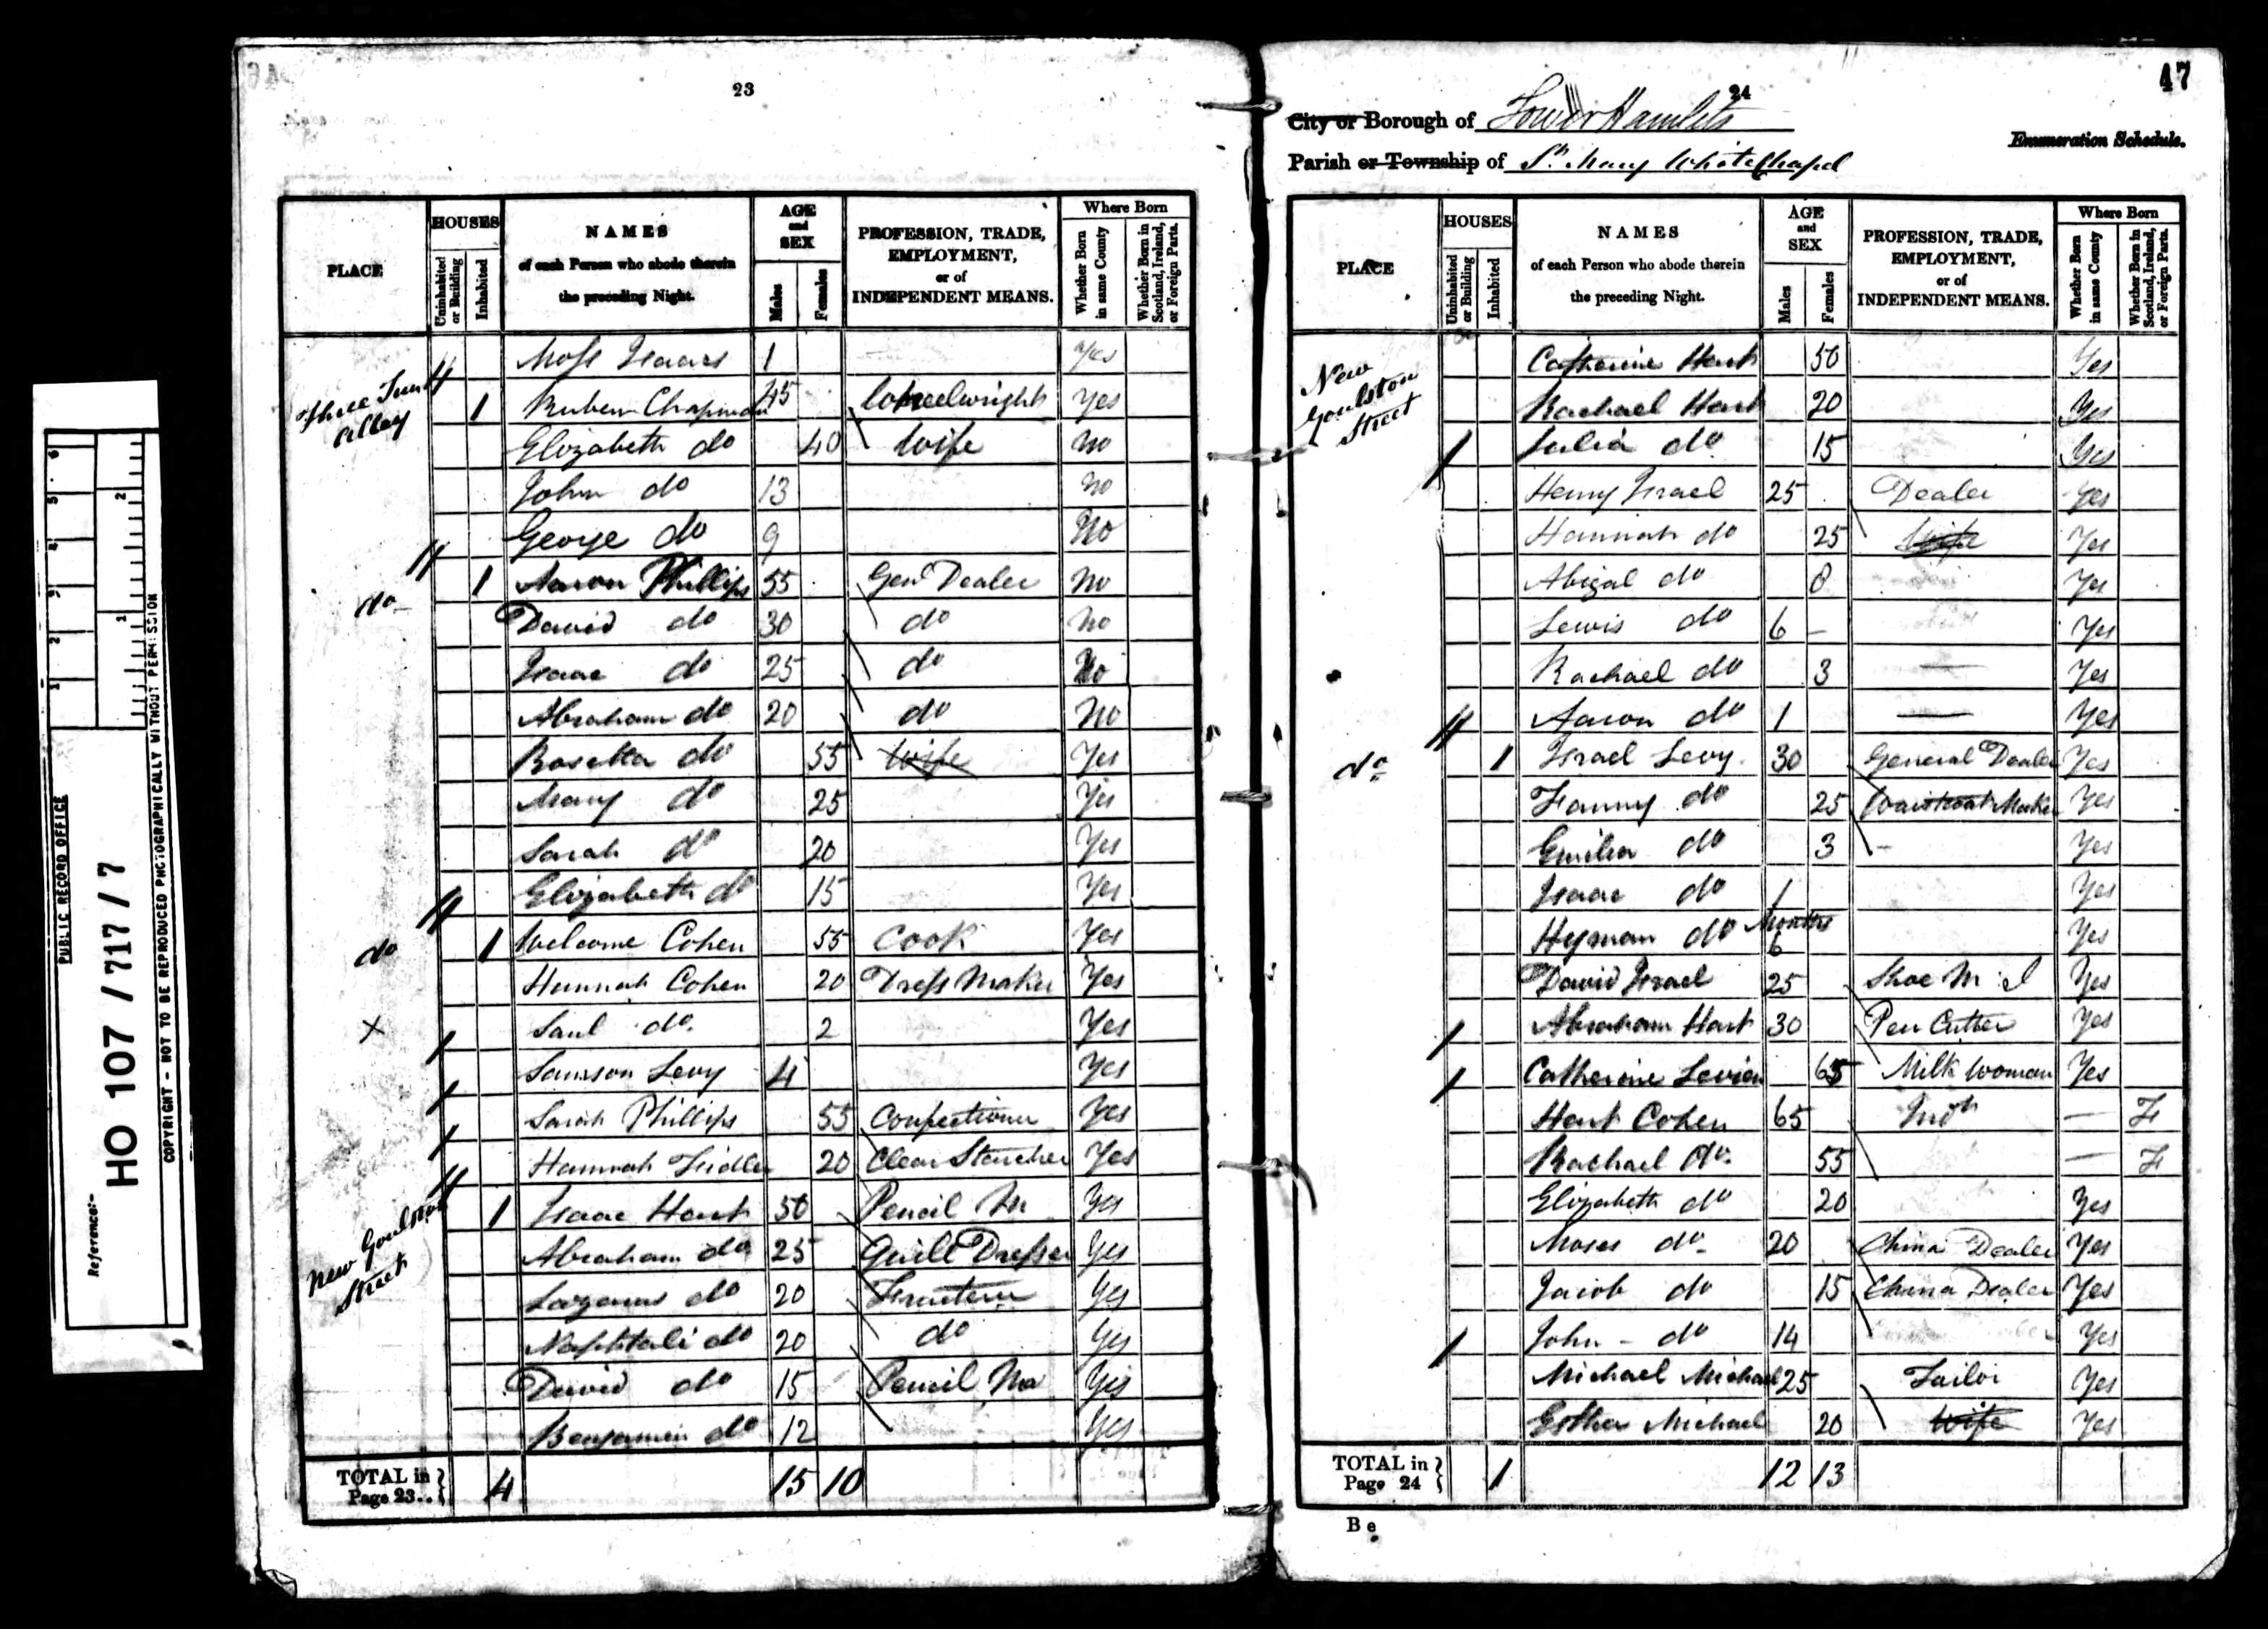 PUBLIC RECORD OFFICE
Reference:-
HO 107 / 717 / 7
COPYRIGHT - NOT TO BE REPRODUCED PHOTOGRAPHICALLY WITHOUT PERMISSION
23
PLACE
HOUSES
Uninhabited or Building
Inhabited
NAMES
of each Person who abode therein
the preceding Night.
AGE and SEX
Males
Females
PROFESSION, TRADE, EMPLOYMENT, or of INDEPENDENT MEANS.
Where Born
Whether Born in same County
Whether Born in Scotland, Ireland, or Foreign Parts.
Moss Isaacs 1 Yes
Three Tun Alley 1 Ruben Chapman 45 Wheelwright Yes
Elizabeth do 40 Wife No
John do 13 No
George do 9 No
do 1 Aaron Phillips 55 Genl Dealer No
David do 30 do No
Isaac do 25 do No
Abraham do 20 do No
Rosetta do 55 Wife Yes
Mary do 25 Yes
Sarah do 20 Yes
Elizabeth do 15 Yes
do 1 Welcome Cohen 55 Cook Yes
Hannah Cohen 20 Dress Maker Yes
X Saul do 2 Yes
Samson Levy 4 Yes
Sarah Phillips 55 Confectioner Yes
Hannah Fidler 20 Clear Starcher Yes
New Goulston Street 1 Isaac Hart 50 Pencil M Yes
Abraham do 25 Quill Dresser Yes
Lazarus do 20 Fruiterer Yes
Naphtali do 20 do Yes
David do 15 Pencil Ma Yes
Benjamin do 12 Yes
TOTAL in Page 23.. 4 15 10
24
47
City or Borough of Tower Hamlets
Enumeration Schedule.
Parish or Township of St. Mary WhiteChapel
PLACE
HOUSES
Uninhabited or Building
Inhabited
NAMES
of each Person who abode therein
the preceding Night.
AGE and SEX
Males
Females
PROFESSION, TRADE, EMPLOYMENT, or of INDEPENDENT MEANS.
Where Born
Whether Born in same County
Whether Born in Scotland, Ireland, or Foreign Parts.
New Goulston Street Catherine Hart 50 Yes
Rachael Hart 20 Yes
Julia do 15 Yes
Henry Israel 25 Dealer Yes
Hannah do 25 Wife Yes
Abigal do 8 Yes
Lewis do 6 – Yes
Rachael do 3 — Yes
Aaron do 1 — Yes
do 1 Israel Levy 30 General Dealer Yes
Fanny do 25 Waistcoat Maker Yes
Emilia do 3 - Yes
Isaac do 1 Yes
Hyman do Months 6 Yes
David Israel 25 Shoe M J Yes
Abraham Hart 30 Pen Cutter Yes
Catherine Levien 65 Milk Woman Yes
Hart Cohen 65 — F
Rachael do 55 — F
Elizabeth do 20 Yes
Moses do 20 China Dealer Yes
Jacob do 15 China Dealer Yes
John - do 14 Yes
Michael Michael 25 Tailor Yes
Esther Michael 20 Wife Yes
TOTAL in Page 24 1 12 13
B e